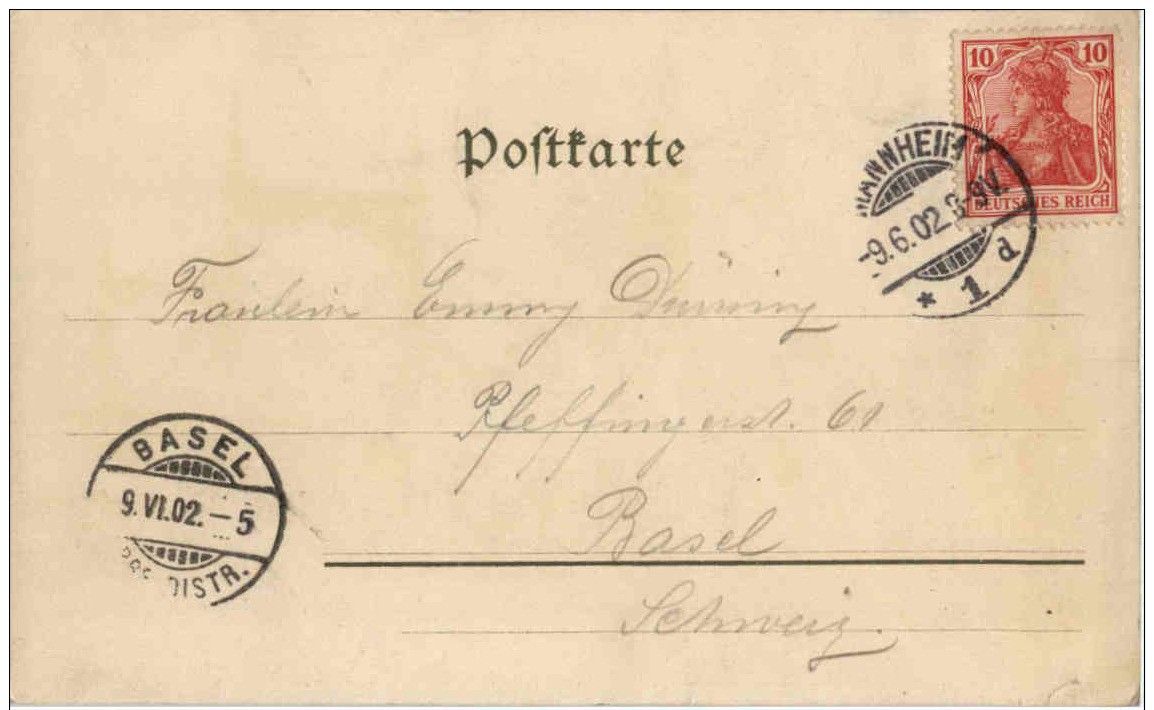 10 10
DEUTSCHES REICH
Postkarte
MANNHEIM
-9.6.02.8-9V.
* 1 d
Fräulein Emmy
Pfeffingerst. 61
Basel
Schweiz.
BASEL
9.VI.02.-5
DISTR.